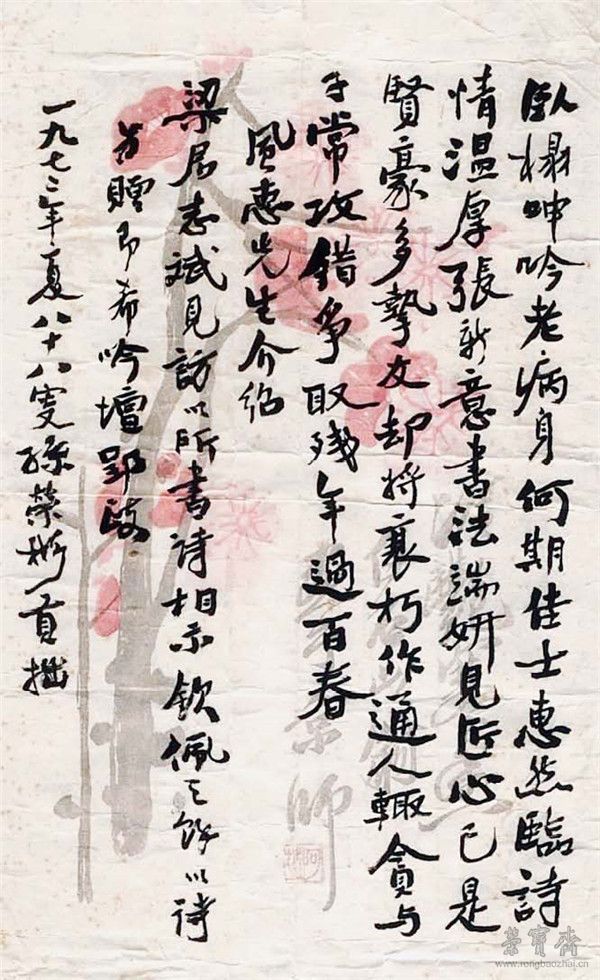 臥榻呻吟老病身何期佳士惠然臨詩
情溫厚張新意書法端妍見匠心已是
賢豪多摯友却将衰朽作通人輙貪与
子常攻錯爭取残年過百春
風惠先生介紹
梁居志斌見訪以所書詩相示欽佩之餘以詩
為贈即希吟壇郢政
一九七三年夏八十八叟孫荣彬貢拙
師
榮寶齋
www.rongbaozhai.cn